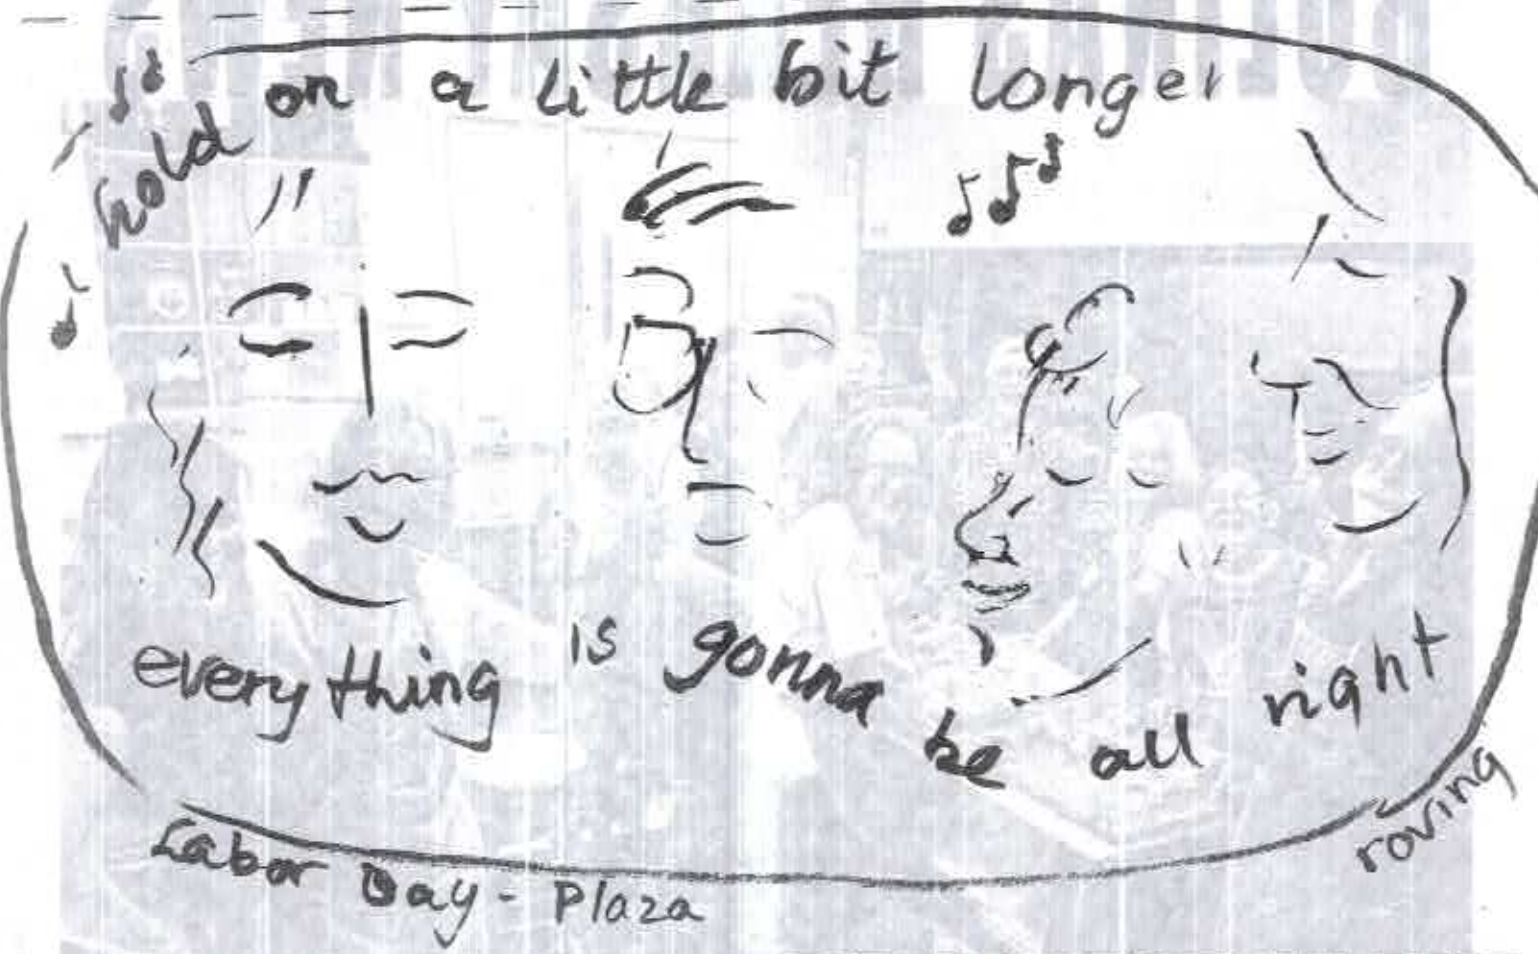 hold on a little bit longer
everything is gonna be all right
Labor Day - Plaza
roving